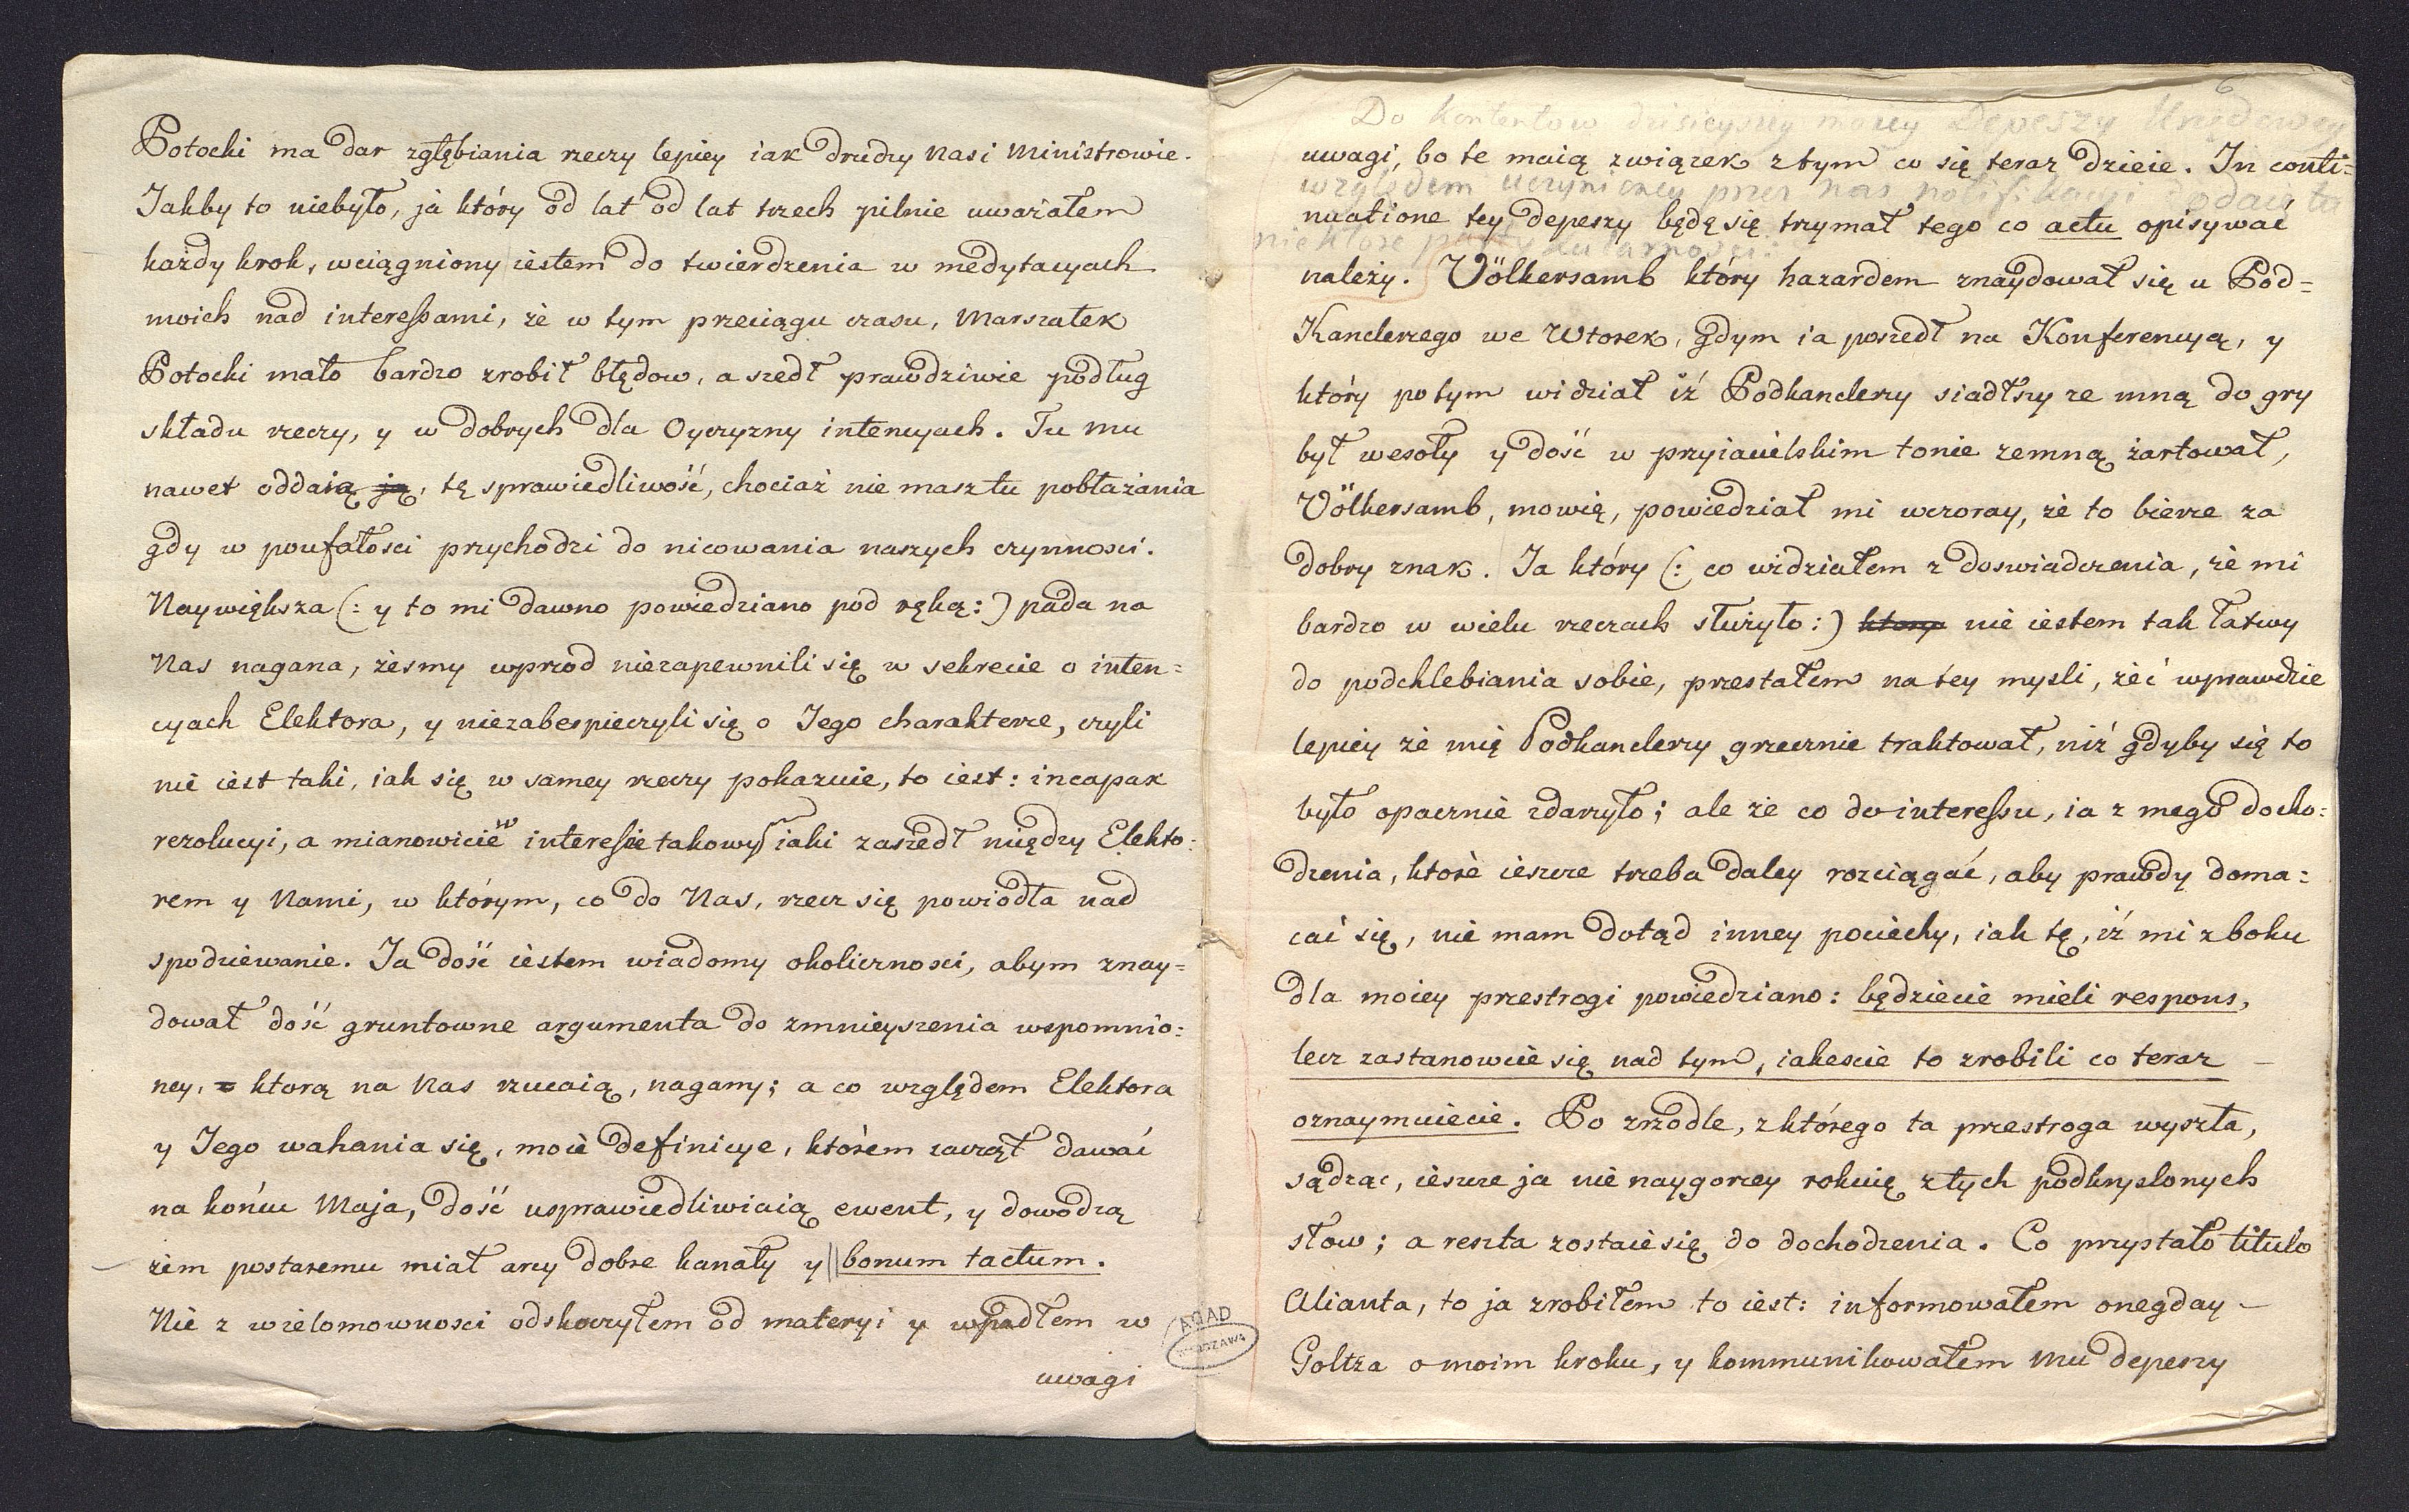 Potocki ma dar zgłębiania rzeczy lepiey iak drudzy nasi Ministrowie.
Jakby to niebyło, ja który od lat od lat trzech pilnie uważałem
każdy krok, wciągniony iestem do twierdzenia w medytacyach
moich nad interessami, że w tym przeciągu czasu, Marszałek
Potocki mało bardzo zrobił błędow, a szedł prawdziwie podług
składu rzeczy, y w dobrych dla Oyczyzny intencyach. Tu mu
nawet oddaią ją, tę sprawiedliwość, chociaż nie masz tu pobłażania
gdy w poufałosci przychodzi do nicowania naszych czynnosci.
Naywiększa (: y to mi dawno powiedziano pod ręką :) pada na
Nas nagana, żesmy wprzod niezapewnili się w sekrecie o inten=
cyach Elektora, y niezabespieczyli się o Jego charakterze, czyli
nie iest taki, iak się w samey rzeczy pokazuie, to iest: incapax
rezolucyi, a mianowicie w interesie takowy iaki zaszedł między Elekto=
rem y Nami, w którym, co do Nas, rzecz się powiodła nad
spodziewanie. Ja dość iestem wiadomy okolicznosci, abym znay=
dował dość gruntowne argumenta do zmnieyszenia wspomnio=
ney, ktorą na Nas rzucaią, nagany; a co względem Elektora
y Jego wahania się, moie definicye, którem zaczął dawać
na końcu Maja, dość usprawiedliwiaią ewent, y dowodzą
żem postaremu miał arcy dobre kanały y || bonum tactum.
Nie z wielomownosci odskoczyłem od materyi y wpadłem w
uwagi
6
Do kontentow dzisieyszey moiey Depeszy Urzędowey
uwagi, bo te maią związek z tym co się teraz dzieie. In conti=
względem uczynioney przez nas notifikacyi dodaię tu
nuatione tey depeszy będę się trzymał tego co actu opisywać
niektore
należy. Völkersamb który hazardem znaydował się u Pod=
Kanclerzego we Wtorek, gdym ia poszedł na Konferencyą, y
który potym widział iż Podkanclerzy siadłszy ze mną do gry
był wesoły y dość w przyiacielskim tonie zemną żartował,
Völkersamb, mowię, powiedział mi wczoray, że to bierze za
dobry znak. Ja który (: co widziałem z doswiadczenia, że mi
bardzo w wielu rzeczach służyło :) ktory nie iestem tak łatwy
do podchlebiania sobie, przestałem na tey mysli, żeć wprawdzie
lepiey że mię Podkanclerzy grzecznie traktował, niż gdyby się to
było opacznie zdarzyło; ale że co do interessu, ia z mego docho=
dzenia, ktore ieszcze trzeba daley rozciągać, aby prawdy doma=
cać się, nie mam dotąd inney pociechy, iak tę, iż mi z boku
dla moiey przestrogi powiedziano: będziecie mieli respons,
lecz zastanowcie się nad tym, iakescie to zrobili co teraz
oznaymuiecie. Po zrzodle, z którego ta przestroga wyszła,
sądząc, ieszcze ja nie naygorzey rokuię z tych podkryslonych
słow; a reszta zostaie się do dochodzenia. Co przystało titulo
Alianta, to ja zrobiłem to iest: informowałem onegday
Goltza o moim kroku, y kommunikowałem Mu depeszy
AGAD
WARSZAWA